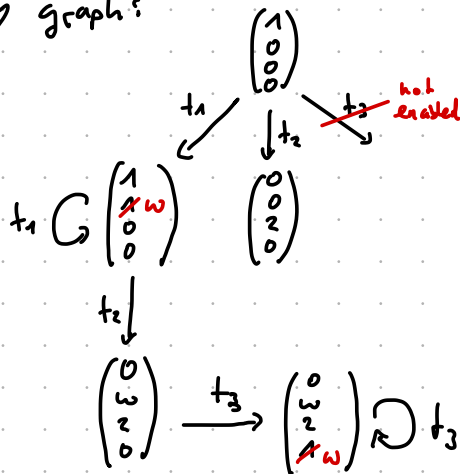 graph?
(1 0 0 0)
t1
t2
t3
not
enabled
t1
(1 1 w 0 0)
(0 0 2 0)
t2
(0 w 2 0)
t3
(0 w 2 1 w)
t3